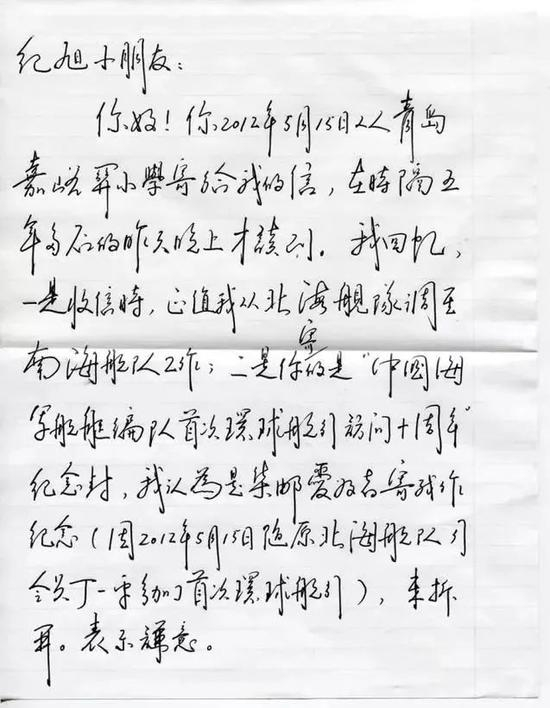 纪旭小朋友：
你好！你2012年5月15日从青岛
嘉峪关小學寄给我的信，在時隔五
年多后的昨天晚上才讀到。我回忆，
一是收信時，正值我从北海舰隊调至
南海舰队工作；二是你寄的是“中國海
军舰艇编队首次環球航行访问十周年”
纪念封，我认為是集邮爱好者寄我作
纪念（因2012年5月15日随原北海舰队司
令员丁一平参加首次環球航行），未拆
开。表示歉意。